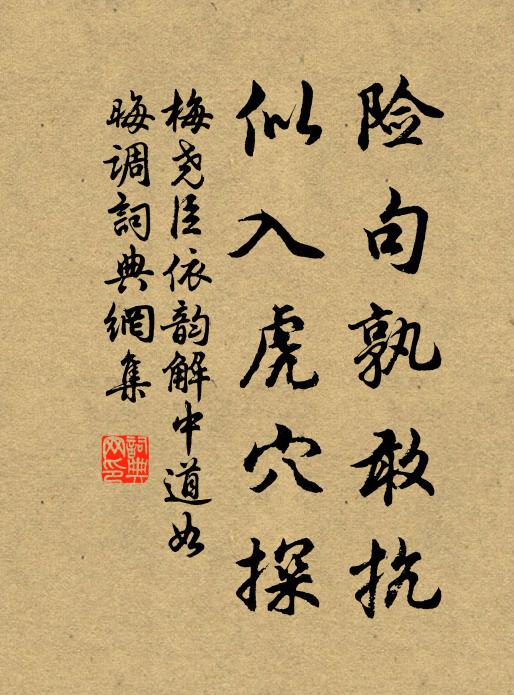 险句孰敢抗
似入虎穴探
梅尧臣依韵解中道如
晦调詞典網集
詞典网印